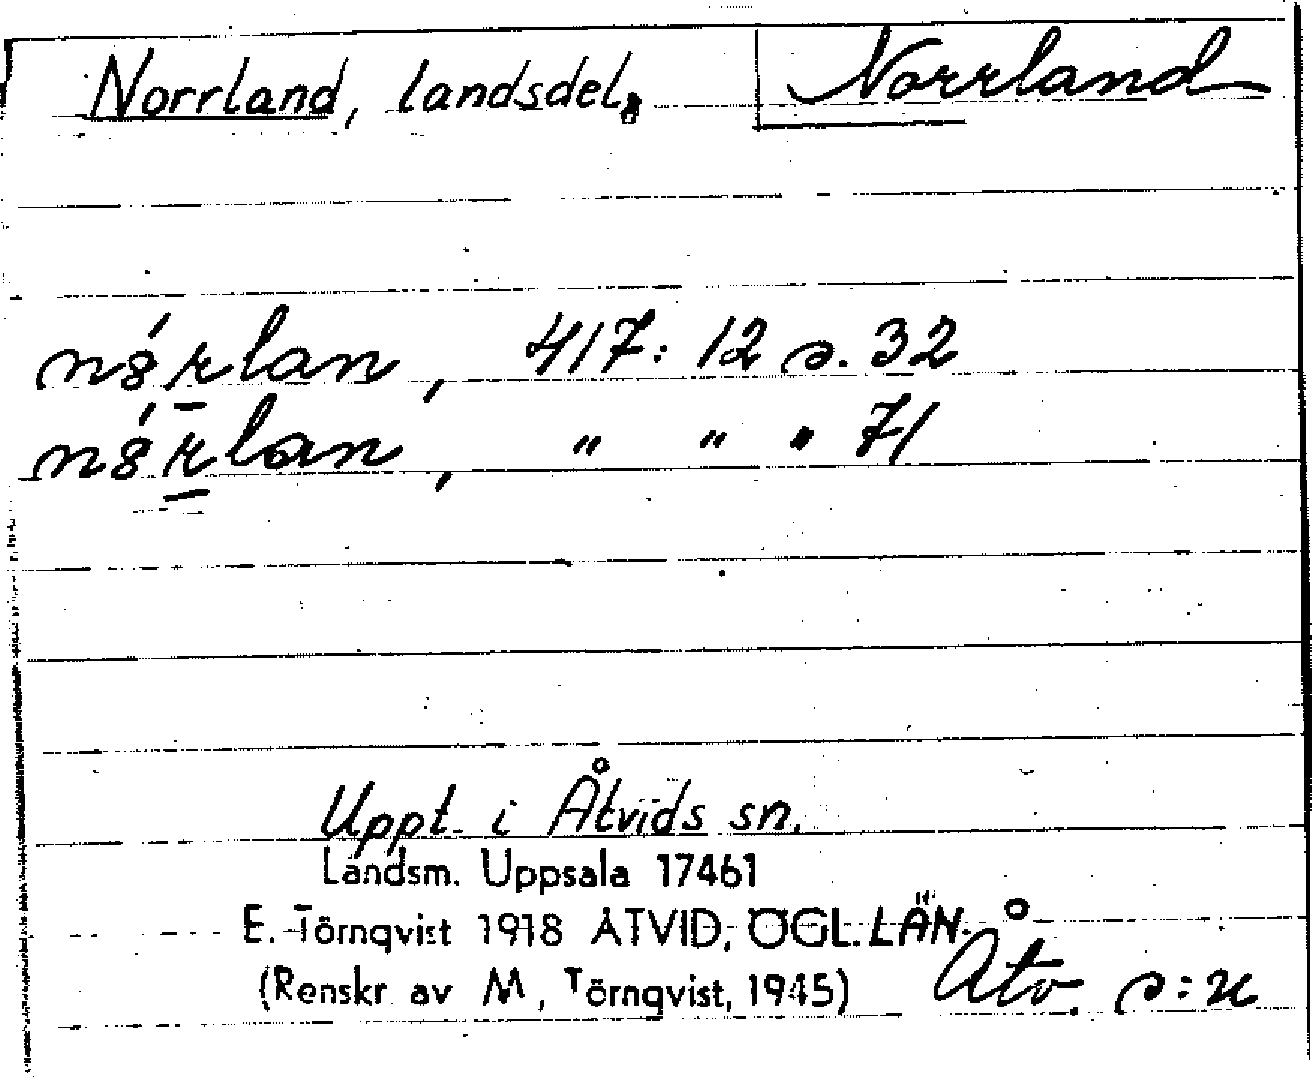 Norrland, landsdel,
Norrland
nórlan, 417: 12 s. 32
nórlan, " " " 71
Uppt. i Åtvids sn.
Landsm. Uppsala 17461
E. Törnqvist 1918 ÅTVID, ÖGL. LÄN.
(Renskr. av M, Törnqvist, 1945)
Åtv. s:n